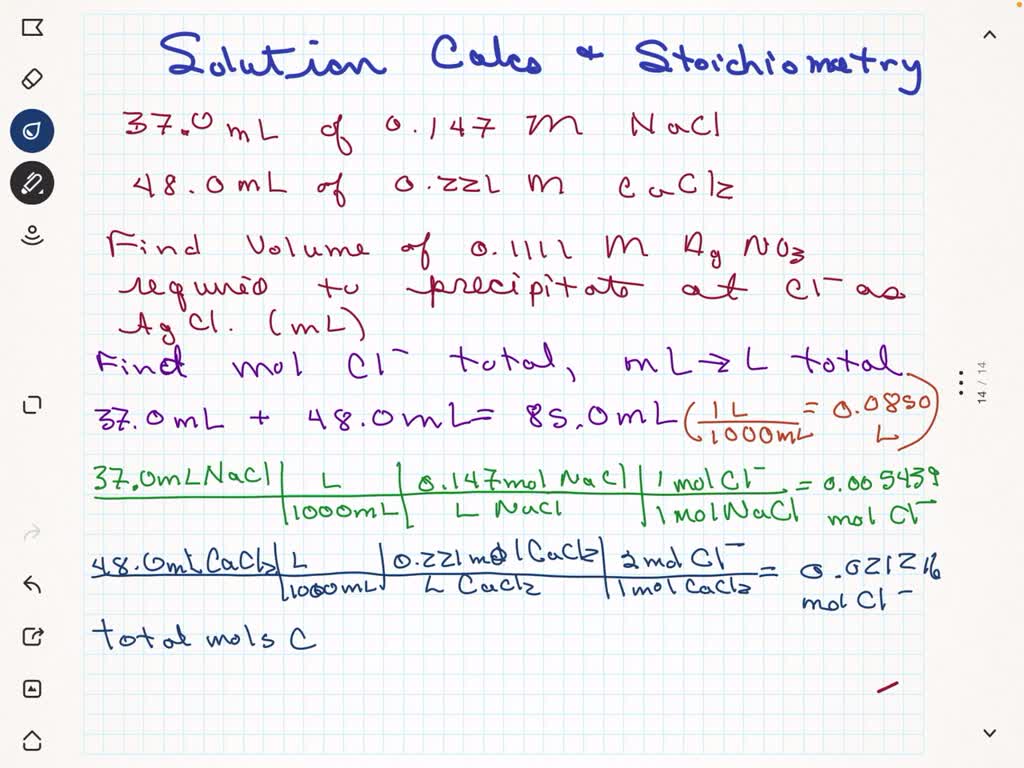 Solution Calcs + Stoichiometry
37.0 mL of 0.147 M NaCl
48.0 mL of 0.221 M CaCl2
Find Volume of 0.1111 M AgNO3
required to precipitate at Cl- as
AgCl. (mL)
Find mol Cl- total, mL → L total
37.0 mL + 48.0 mL = 85.0 mL (1 L / 1000 mL = 0.0850 L)
37.0 mL NaCl | L / 1000 mL | 0.147 mol NaCl / L NaCl | 1 mol Cl- / 1 mol NaCl = 0.005439 mol Cl-
48.0 mL CaCl2 | L / 1000 mL | 0.221 mol CaCl2 / L CaCl2 | 2 mol Cl- / 1 mol CaCl2 = 0.021216 mol Cl-
total mols C
14 / 14